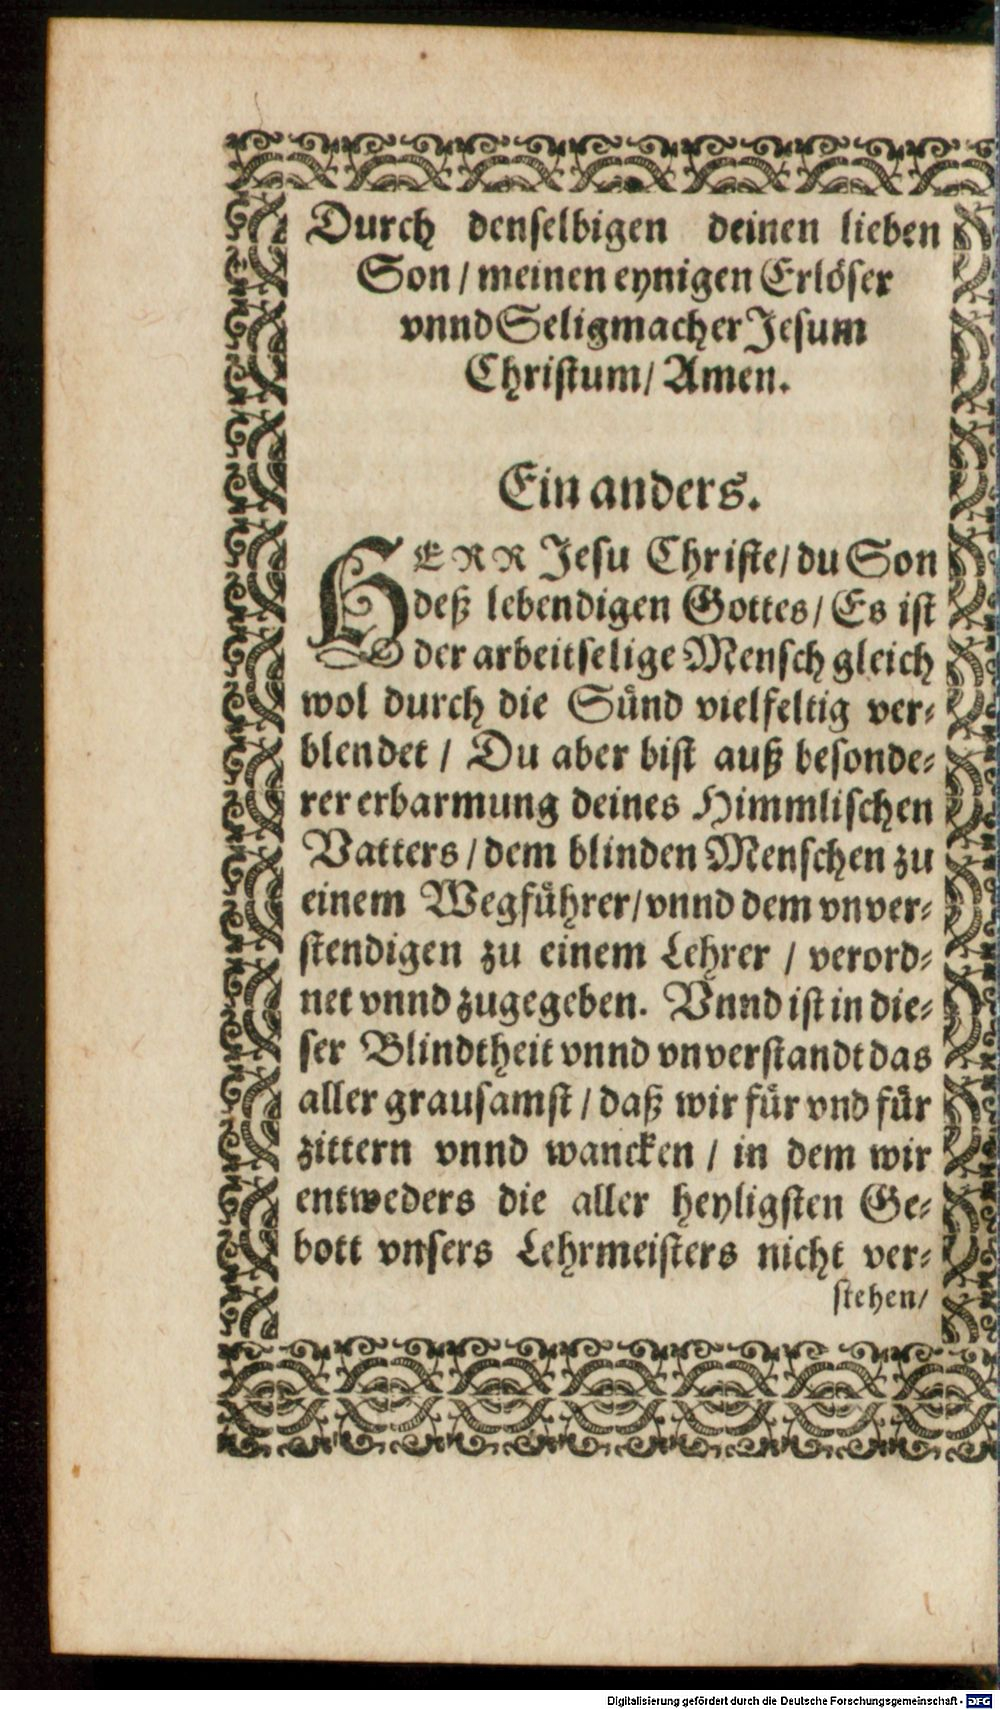 Durch denselbigen deinen lieben
Son / meinen eynigen Erlöser
vnnd Seligmacher Jesum
Christum / Amen.
Ein anders.
HERR Jesu Christe / du Son
deß lebendigen Gottes / Es ist
der arbeitselige Mensch gleich
wol durch die Sünd vielfeltig ver-
blendet / Du aber bist auß besonde-
rer erbarmung deines Himmlischen
Vatters / dem blinden Menschen zu
einem Wegführer / vnnd dem vnver-
stendigen zu einem Lehrer / verord-
net vnnd zugegeben. Vnnd ist in die-
ser Blindtheit vnnd vnverstandt das
aller grausamst / daß wir für vnd für
zittern vnnd wancken / in dem wir
entweders die aller heyligsten Ge-
bott vnsers Lehrmeisters nicht ver-
stehen /
Digitalisierung gefördert durch die Deutsche Forschungsgemeinschaft - DFG